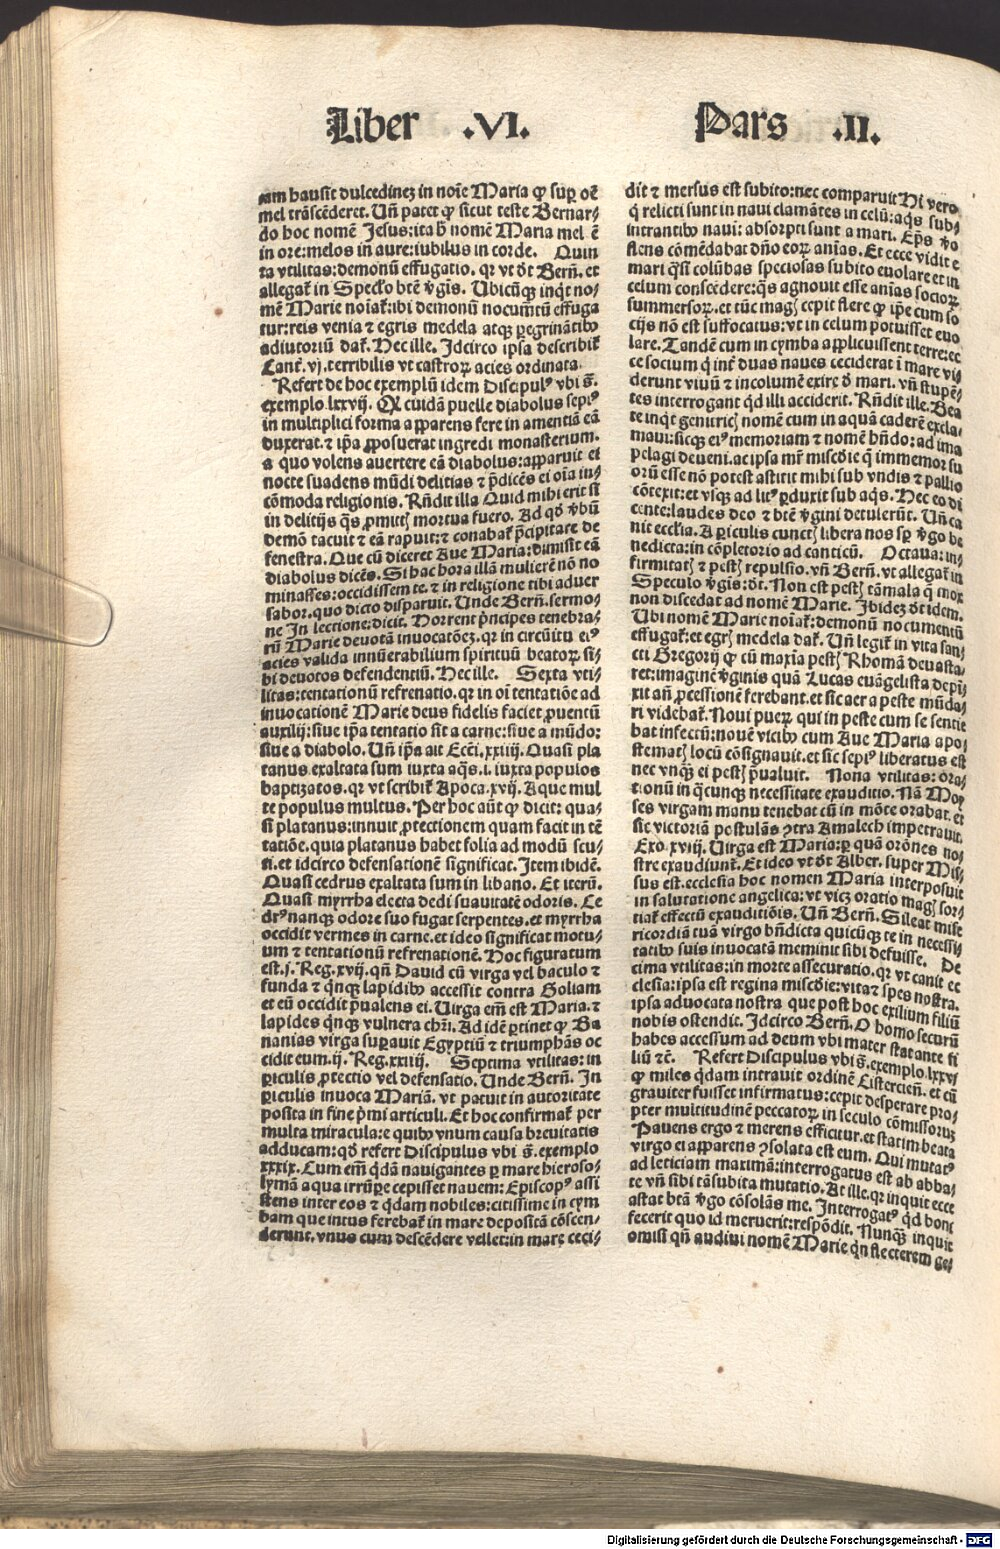 Liber .VI. Pars .II.
am hausit dulcedinez in noīe Maria ꝙ suꝑ oē
mel trāscēderet. Uñ patet ꝙ sicut teste Bernar⸗
do hoc nomē Jesus: ita b̄ nomē Maria mel ē
in ore: melos in aure: iubilus in corde. Quin
ta vtilitas: demonū effugatio. qꝛ vt dt̄ Berñ. et
allegat̄ in Speclo btē v̄gīs. Ubicūqꝫ inqͥt no⸗
mē Marie noīat̄: ibi demonū nocumtū effuga
tur: reis venia ⁊ egris medela atqꝫ ꝑegrinātibꝰ
adiutoriū dat̄. Hec ille. Idcirco ipsa describit̄
Cant̄. vj. terribilis vt castroꝝ acies ordinata.
Refert de hoc exemplū idem Discipulꝰ vbi s̄.
exemplo. lxxvij. Q cuidā puelle diabolus sepiꝰ
in multiplici forma apparens fere in amentiā eā
duxerat. ⁊ ip̄a ꝓposuerat ingredi monasterium.
a quo volens auertere eā diabolus: apparuit ei
nocte suadens mūdi delitias ⁊ p̄dicēs ei oīa in⸗
cōmoda religionis. Rñdit illa Quid mihi erit si
in delitijs qͣs ꝓmittꝭ mortua fuero. Ad qd̄ v̄bū
demō tacuit ⁊ eā rapuit: ⁊ conabat̄ p̄cipitare de
fenestra. Que cū diceret Aue Maria: dimisit eā
diabolus dicēs. Si hac hora illā mulierē nō no
minasses: occidissem te. ⁊ in religione tibi aduer
sabor. quo dicto disparuit. Unde Berñ. sermo⸗
ne In lectione: dicit. Horrent p̄ncipes tenebra⸗
rū Marie deuotā inuocatōez. qꝛ in circūitu eiꝰ
acies valida innūerabilium spirituū beatoꝝ. si⸗
bi deuotos defendentiū. Hec ille. Sexta vti⸗
litas: tentationū refrenatio. qꝛ in oī tentatiōe ad
inuocationē Marie deus fidelis faciet ꝓuentū
auxilij: siue ip̄a tentatio sit a carne: siue a mūdo:
siue a diabolo. Uñ ip̄s ait Eccī. xxiiij. Quasi pla
tanus exaltata sum iuxta aqͣs. i. iuxta populos
baptizatos. qꝛ vt scribit̄ Apoca. xvij. Aque mul
te populus multus. Per hoc aūt ꝙ dicit: qua⸗
si platanus: innuit ꝓtectionem quam facit in tē
tatiōe. quia platanus habet folia ad modū scu⸗
ti. et idcirco defensationē significat. Item ibidē.
Quasi cedrus exaltata sum in libano. Et iterū.
Quasi myrrha electa dedi suauitatē odoris. Ce
drꝰ nanqꝫ odore suo fugat serpentes. et myrrha
occidit vermes in carne. et ideo significat motu⸗
um ⁊ tentationū refrenationē. Hoc figuratum
est. j. Reg. xvij. qñ Dauid cū virga vel baculo ⁊
funda ⁊ qͥnqꝫ lapidibꝰ accessit contra Goliam
et eū occidit p̄ualens ei. Uirga em̄ est Maria. ⁊
lapides qͥnqꝫ vulnera chrī. Ad idē ꝑtinet ꝙ Ba
nanias virga suꝑauit Egyptiū ⁊ triumphās oc
cidit eum. ij. Reg. xxiij. Septima vtilitas: in
ꝑiculis ꝓtectio vel defensatio. Unde Berñ. In
ꝑiculis inuoca Mariā. vt patuit in autoritate
posita in fine p̄mi articuli. Et hoc confirmat̄ per
multa miracula: e quibꝰ vnum causa breuitatis
adducam: qd̄ refert Discipulus vbi s̄. exemplo
xxxix. Cum em̄ qͥdā nauigantes ꝑ mare hieroso⸗
lymā aqua irrūꝑe cepisset nauem: Episcopꝰ assi
stens inter eos ⁊ qͥdam nobiles: citissime in cym
bam que intus ferebat̄ in mare depositā cōscen⸗
derunt. vnus cum descēdere vellet: in mare ceci⸗
dit ⁊ mersus est subito: nec comparuit Hi vero
qͥ relicti sunt in naui clamātes in celū: aqͣs sub⸗
intrantibꝰ naui: absorpti sunt a mari. Ep̄s v̄o
flens cōmēdabat dño eoꝝ aīas. Et ecce vidit e
mari qͣsi colūbas speciosas subito euolare et in
celum conscēdere: qͣs agnouit esse aīas socioꝝ
summersoꝝ. et tūc magꝭ cepit flere ꝙ ip̄e cum so
cijs nō est suffocatus: vt in celum potuisset euo
lare. Tandē cum in cymba applicuissent terre: ec
ce socium qͥ int̄ duas naues ceciderat ī mare vi⸗
derunt viuū ⁊ incolumē exire d̄ mari. vñ stupē⸗
tes interrogant qd̄ illi acciderit. Rñdit ille. Bea
te inqͥt genitricꝭ nomē cum in aquā caderē excla⸗
maui: sicqꝫ eiꝰ memoriam ⁊ nomē bñdo: ad ima
pelagi deueni. ac ipsa mr̄ miscdie qͣ immemor su
orū esse nō potest astitit mihi sub vndis ⁊ pallio
cōtexit: et vsqꝫ ad litꝰ ꝑduxit sub aqͣs. Hec eo di
cente: laudes deo ⁊ btē v̄gini detulerūt. Uñ ca
nit ecclīa. A ꝑiculis cunctꝭ libera nos sꝑ v̄go be
nedicta: in cōpletorio ad canticū. Octaua: in⸗
firmitatꝭ ⁊ pestꝭ repulsio. vñ Berñ. vt allegat̄ in
Speculo v̄gis: dt̄. Non est pestꝭ tāmala qͣ mox
non discedat ad nomē Marie. Ibidez dt̄ idem.
Ubi nomē Marie noīat̄: demonū nocumentū
effugat̄: et egrꝭ medela dat̄. Uñ legit̄ in vita san⸗
cti Gregorij ꝙ cū maxīa pestꝭ Rhomā deuasta⸗
ret: imaginē v̄ginis quā Lucas euāgelista depī⸗
xit añ ꝓcessionē ferebant. et sic aer a peste mūda⸗
ri videbat̄. Noui pueꝝ qui in peste cum se sentie
bat infectū: nouē vicibꝰ cum Aue Maria apo⸗
stematꝭ locū cōsignauit. et sic sepiꝰ liberatus est
nec vnqͣꝫ ei pestꝭ p̄ualuit. Nona vtilitas: ora⸗
tionū in qͣcunqꝫ necessitate exauditio. Nā Moy
ses virgam manu tenebat cū in mōte orabat. et
sic victoriā postulās ꝯtra Amalech impetrauit.
Exo. xvij. Uirga est Maria: ꝑ quā orōnes no⸗
stre exaudiunt̄. Et ideo vt dt̄ Alber. super Mis⸗
sus est. ecclesia hoc nomen Maria interposuit
in salutatione angelica: vt vicz oratio magꝭ sor⸗
tiat̄ effectū exauditiōis. Uñ Berñ. Sileat mise
ricordiā tuā virgo bñdicta quicūqꝫ te in necessi⸗
tatibꝰ suis inuocatā meminit sibi defuisse. De
cima vtilitas: in morte assecuratio. qꝛ vt canit ec
clesia: ipsa est regina miscdie: vita ⁊ spes nostra.
ipsa aduocata nostra que post hoc exilium filiū
nobis ostendit. Idcirco Berñ. O homo securū
habes accessum ad deum vbi mater stat ante fi
liū ⁊c̄. Refert Discipulus vbi s̄. exemplo. lxxvj
ꝙ miles qͥdam intrauit ordinē Cistercieñ. et cū
grauiter fuisset infirmatus: cepit desperare pro⸗
pter multitudinē peccatoꝝ in seculo cōmissoruz
Pauens ergo ⁊ merens efficitur. et statim beata
virgo ei apparens ꝯsolata est eum. Qui mutatꝰ
ad leticiam maximā: interrogatus est ab abba⸗
te vñ sibi tā subita mutatio. At ille. qꝛ inquit ecce
astat btā v̄go cōsolās me. Interrogatꝰ qd̄ boni
fecerit quo id meruerit: respōdit. Nunqͣꝫ inquit
omisi qñ audiui nomē Marie qͥn flecterem ge⸗
Digitalisierung gefördert durch die Deutsche Forschungsgemeinschaft - DFG